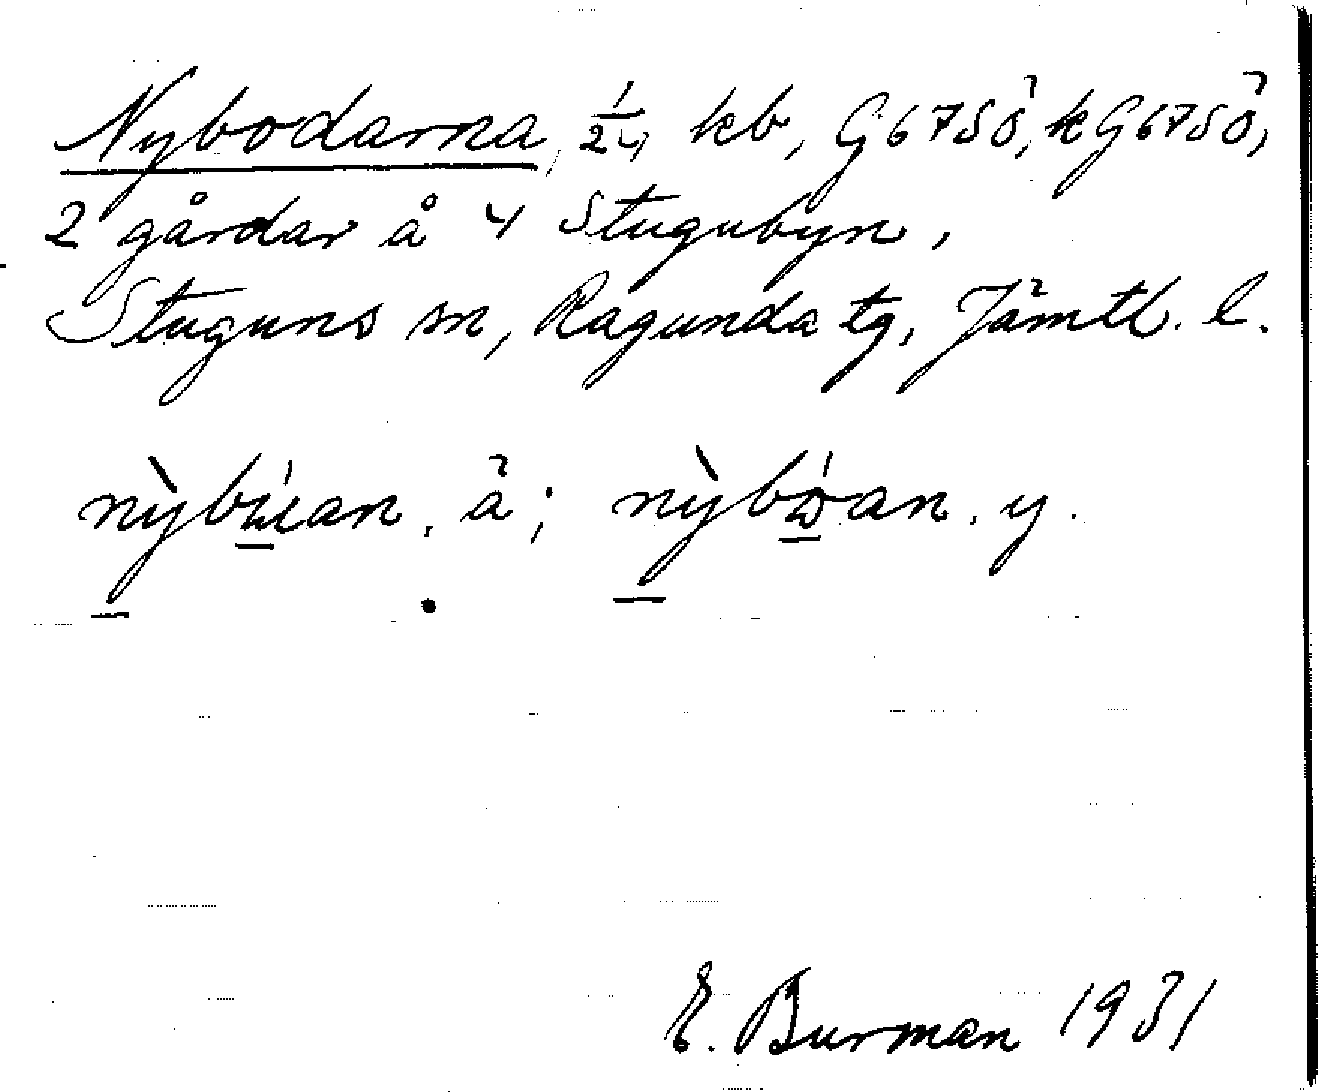 Nybodarna, 1/24, kb, G67SÖ, kG67SÖ,
2 gårdar å 4 Stugubyn,
Stuguns sn, Ragunda tg, Jämtl. l.
ä; y.
E. Burman 1931